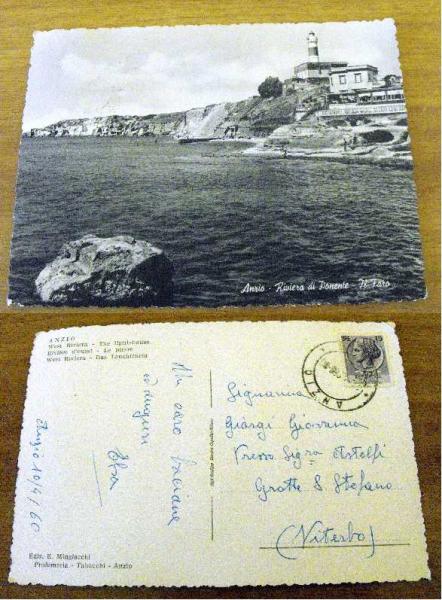 Anzio - Riviera di Ponente - Il Faro
ANZIO
West Riviera - The light-house
Riviera d'ouest - Le phare
West Riviera - Das Leuchtturm
Un caro bacione
ed auguri
Elsa
Anzio 10/4/60
Ediz. E. Mingiacchi
Profumeria - Tabacchi - Anzio
ANZIO
Signorina
Giorgi Giovanna
Presso Sigra Astolfi
Grotte S. Stefano
(Viterbo)